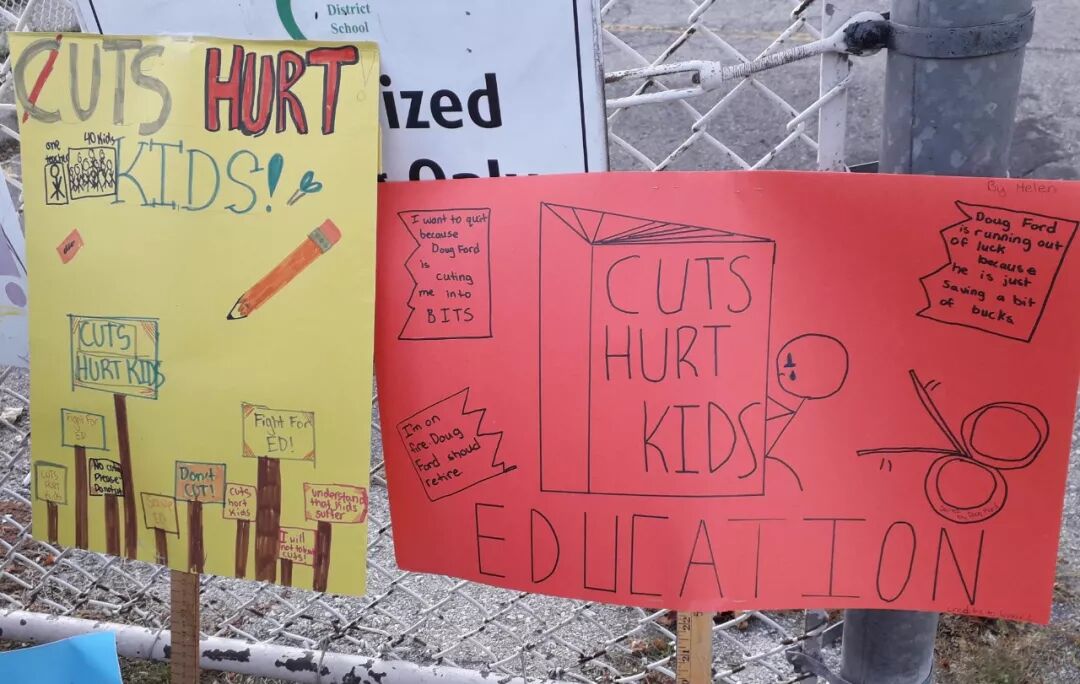 District
School
ized
CUTS HURT
KIDS!
one
teacher
40 Kids
CUTS
HURT KIDS
Fight For
ED!
Don't
CUT!
Cuts
hort
kids
understand
that kids
suffer
I will
cuts!
By Helen
I want to quit
because
Doug Ford
is
cuting
me into
BITS
CUTS
HURT
KIDS
Doug Ford
is running out
of luck
because
he is just
Saving a bit
of bucks
I'm on
fire Doug
Ford should
retire
EDUCATION